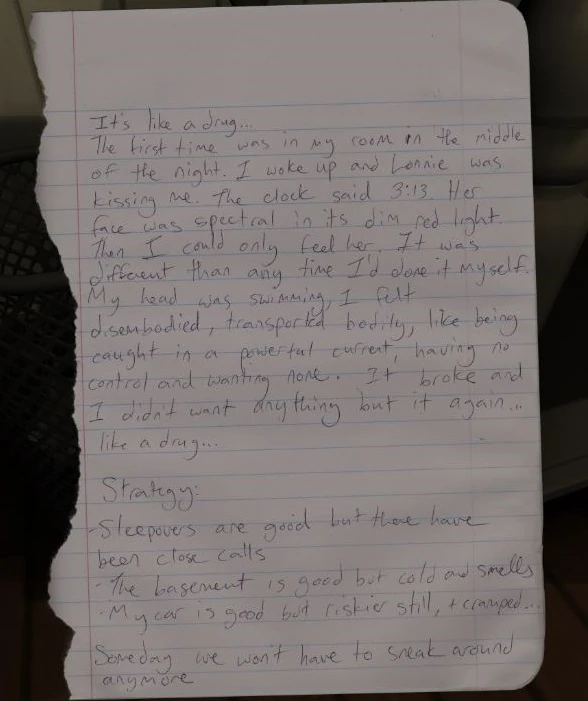 It's like a drug...
The first time was in my room in the middle
of the night. I woke up and Lonnie was
kissing me. The clock said 3:13. Her
face was spectral in its dim red light.
Then I could only feel her. It was
different than any time I'd done it myself.
My head was swimming, I felt
disembodied, transported bodily, like being
caught in a powerful current, having no
control and wanting none. It broke and
I didn't want anything but it again...
like a drug...
Strategy:
-Sleepovers are good but there have
been close calls
-The basement is good but cold and smells
-My car is good but riskier still, + cramped...
Someday we won't have to sneak around
anymore